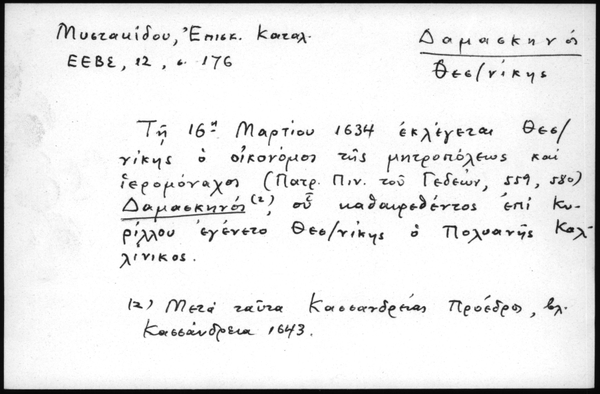 Μυστακίδου, Ἐπισκ. Καταλ.
ΕΕΒΣ, 12, σ. 176
Δαμασκηνός
Θεσ/νίκης
Τῇ 16ῃ Μαρτίου 1634 ἐκλέγεται Θεσ/
νίκης ὁ οἰκονόμος τῆς μητροπόλεως καὶ
ἱερομόναχος (Πατρ. Πιν. τοῦ Γεδεών, 559, 580)
Δαμασκηνός (2), οὗ καθαιρεθέντος ἐπὶ Κυ-
ρίλλου ἐγένετο Θεσ/νίκης ὁ Πολυανῆς Καλ-
λίνικος.
(2) Μετὰ ταῦτα Κασσανδρείας Πρόεδρος, βλ.
Κασσάνδρεια 1643.